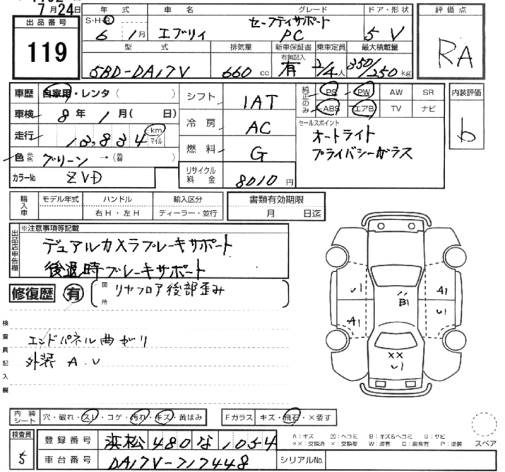 7月24日
出品番号 119
年式 車名 グレード ドア・形状 評価点
S・H・R 6年 1月 エブリィ セーフティサポート PC 5V RA
型式 排気量 新車保証書 有 乗車定員 最大積載量
5BD-DA17V 660cc 有 2/4人 350/250kg
車歴 自家用・レンタ( ) シフト 1AT 純正のみ PS PW AW SR 内装評価 b
車検 8年1月( )日 ABS エアB TV ナビ
走行 12,834 km マイル 冷房 AC セールスポイント
色 グリーン → 燃料 G オートライト
カラーNo ZVD リサイクル料金 8010円 プライバシーガラス
輸入車 モデル年式 ハンドル 輸入区分 書類有効期限
右H・左H ディーラー・並行 月 日迄
※注意事項等記載
デュアルカメラブレーキサポート
後退時ブレーキサポート
修復歴 有 箇所 リヤフロア後部歪み
検査員記入欄
エンドパネル曲がり
外装 A.U
U1 A1 A1 U1 B1 XX U1
内装シート 穴・破れ・スレ・コゲ・汚れ・キズ・黄ばみ Fガラス キズ・飛石・×要す
A:キズ U:ヘコミ B:キズ&ヘコミ S:サビ
スペア
検査員 5 登録番号 浜松 480 な 1054
車台番号 DA17V-717448 シリアルNo.